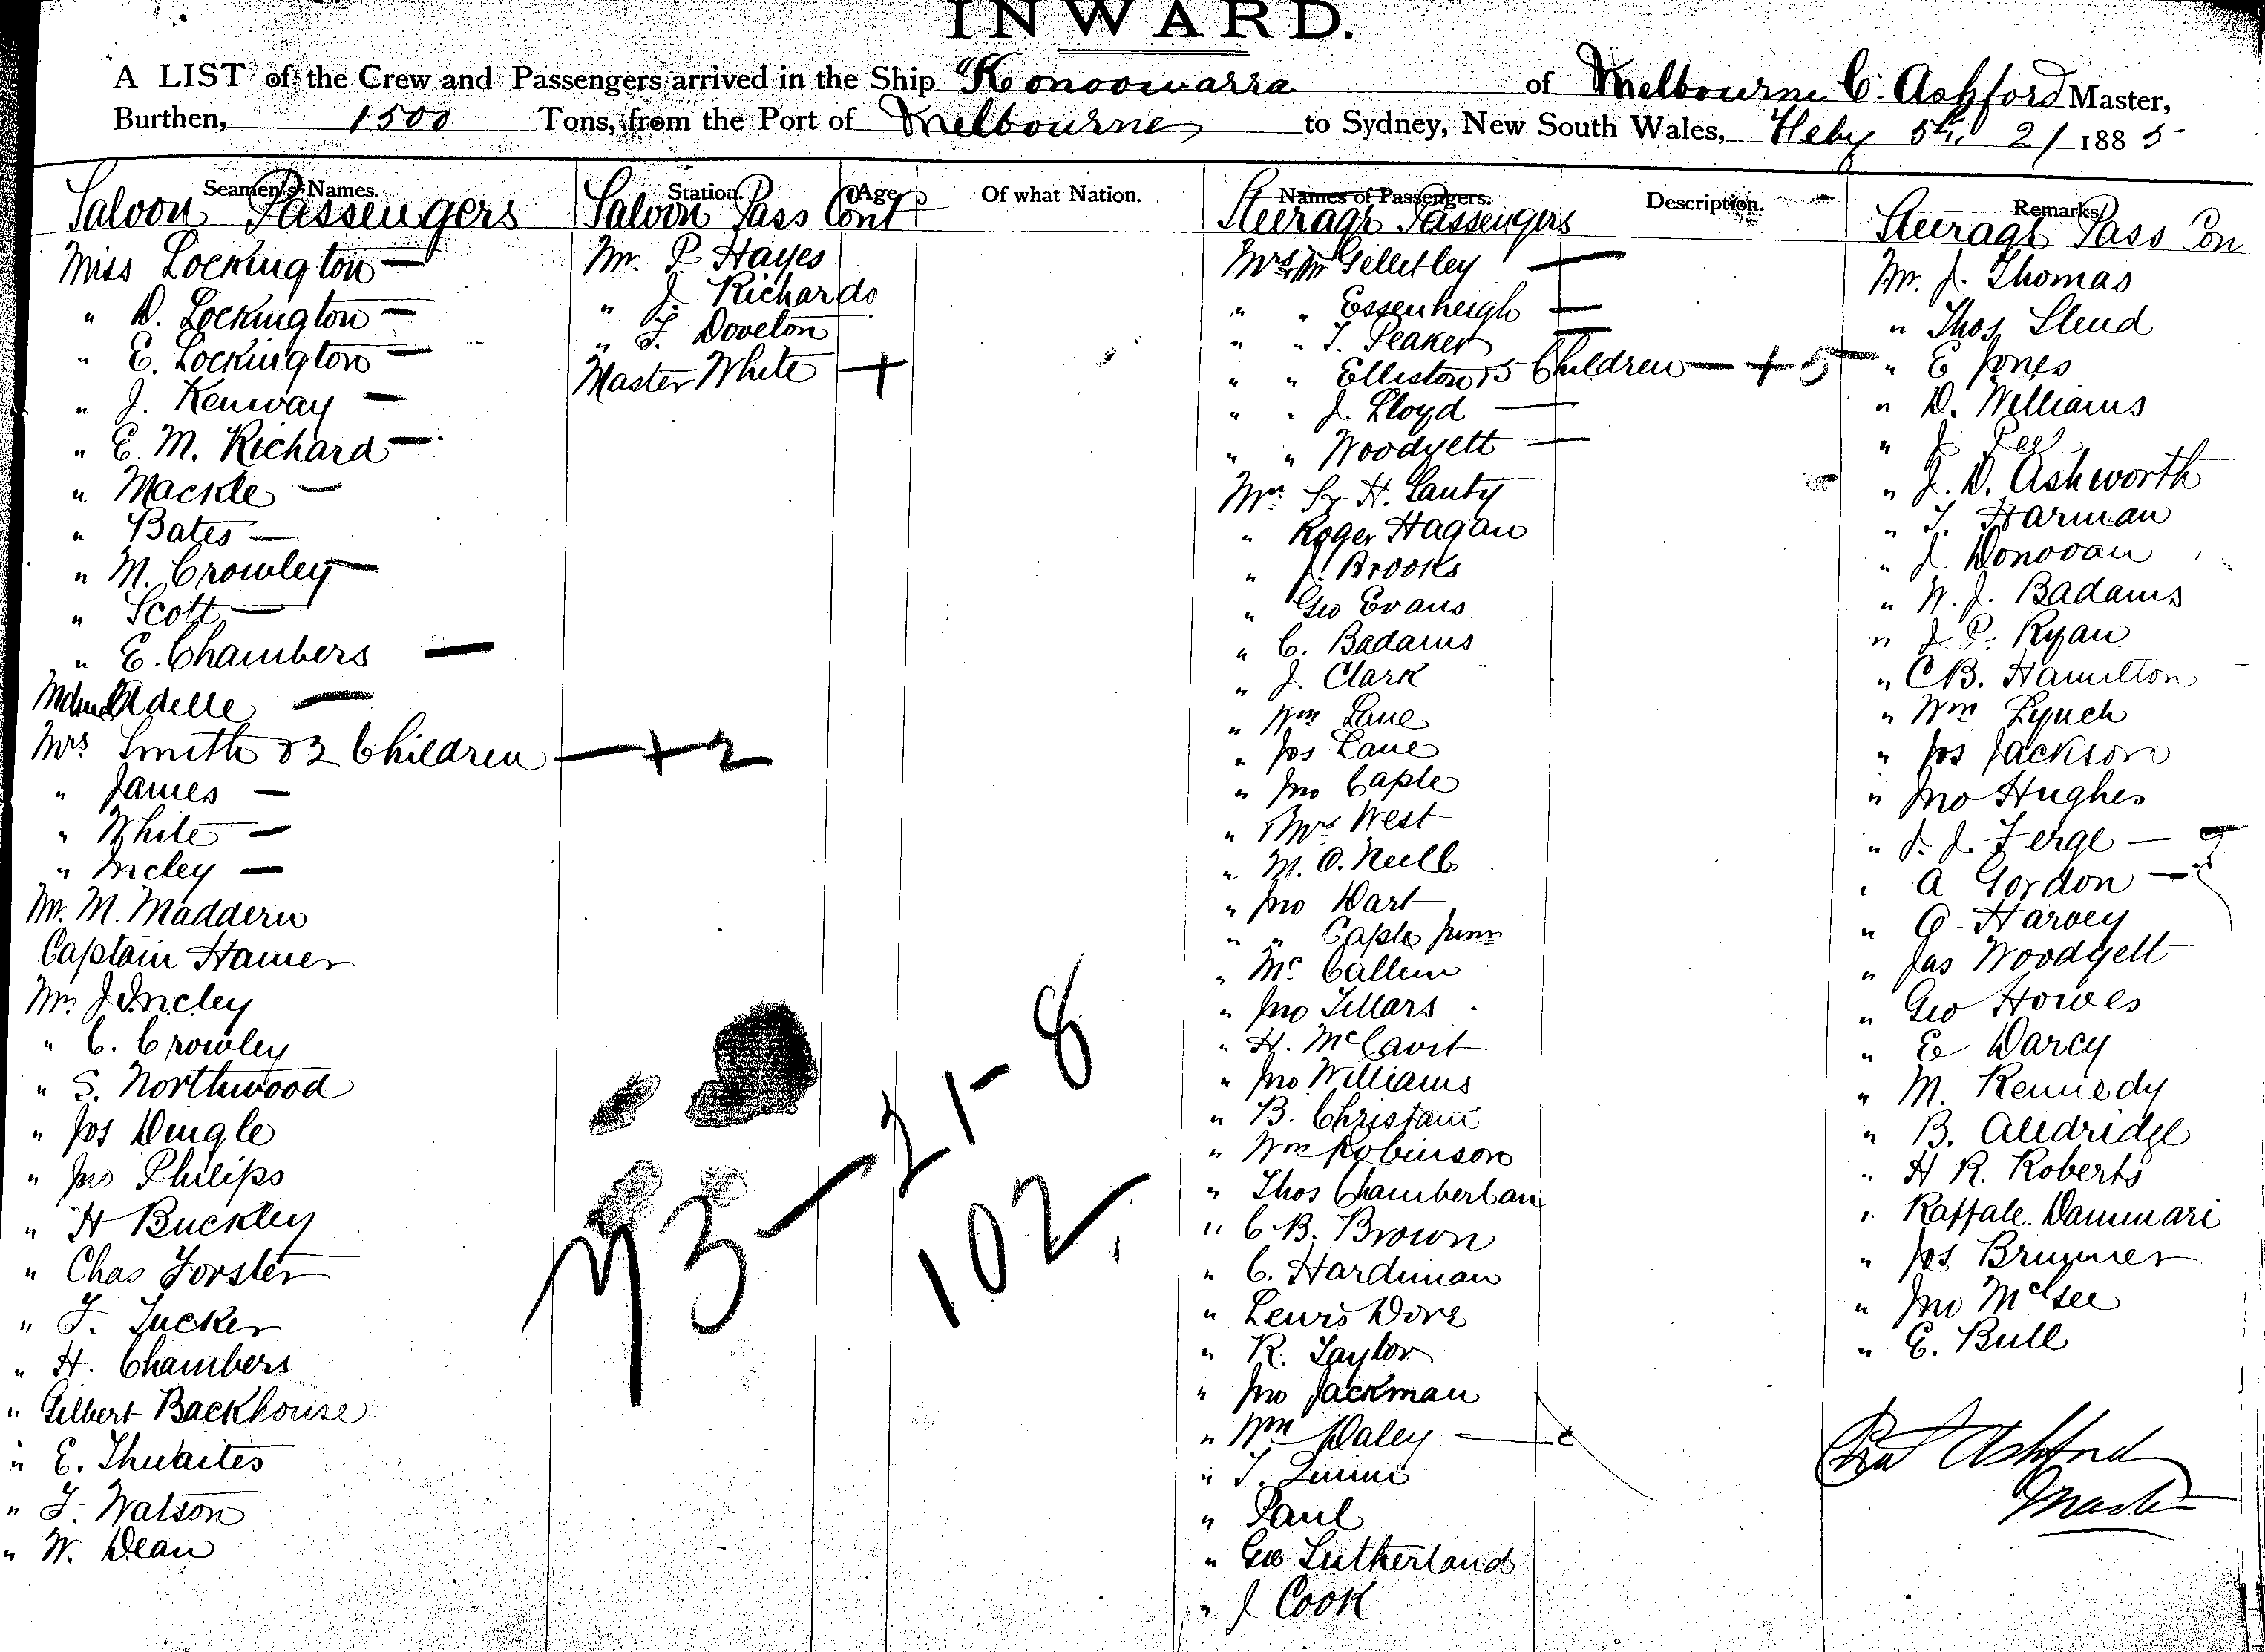 INWARD.
A LIST of the Crew and Passengers arrived in the Ship "Konoowarra of Melbourne C. Ashford Master,
Burthen, 1500 Tons, from the Port of Melbourne to Sydney, New South Wales, Feby 5th 2/ 1885
Seamen's Names. Station. Age. Of what Nation. Names of Passengers. Description. Remarks.
Saloon Passengers
Miss Lockington —
" D. Lockington —
" E. Lockington —
" J. Kenway —
" E. M. Richard —
" Mackle —
" Bates —
" M. Crowley —
" Scott —
" E. Chambers —
Mdme Adelle —
Mrs Smith & 2 Children — + 2
" James —
" White —
" Incley —
Mr. M. Maddern
Captain Hamer
Mr. J. Incley
" C. Crowley
" S. Northwood
" Jos Dingle
" Jno Philips
" H Buckley
" Chas Forster
" F. Tucker
" H. Chambers
" Gilbert Backhouse
" E. Thwaites
" F. Watson
" W. Dean
Saloon Pass Cont
Mr. P Hayes
" J. Richards
" F. Doveton
Master White +
73 — 21 - 8
102
Steerage Passengers
Mrs Gelletley —
" " Essenheigh —
" " T. Peaker —
" " Elliston & 5 Children — + 5
" " J. Lloyd —
" " Woodyett —
Mr. H. Lanty
" Roger Hagan
" J. Brooks
" Geo Evans
" C. Badams
" J. Clark
" Wm Lane
" Jos Lane
" Jno Caple
" West
" M. O. Neill
" Jno Dart
" " Caple Junr
" Mc Callum
" Jno Tillars
" H. McCavit
" Jno Williams
" B. Christani
" Wm Robinson
" Thos Chamberlain
" C B. Brown
" C. Hardiman
" Lewis Dore
" R. Taylor
" Jno Jackman
" Wm Daley — c
" T. Quinn
" Paul
" Geo Sutherland
" J Cook
Steerage Pass Con
Mr. J. Thomas
" Thos
" E Jones
" D. Williams
" J. Lee
" J. D. Ashworth
" T. Harman
" J Donovan
" W. J. Badams
" J P. Ryan
" C B. Hamilton
" Wm Lynch
" Jos Jackson
" Jno Hughes
" J. J. Ferge —
" A Gordon —
" G. Harvey
" Jas Woodyett
" Geo Howes
" E Darcy
" M. Kennedy
" B. Alldridge
" H R. Roberts
" Raffale. Dammari
" Jos Brunner
" Jno McGee
" E. Bull
Ashford
Master